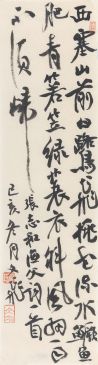 西塞山前白鷺飛桃花流水鱖魚
肥青箬笠綠蓑衣斜風細雨
不須歸 張志和漁父詞一首
己亥冬月